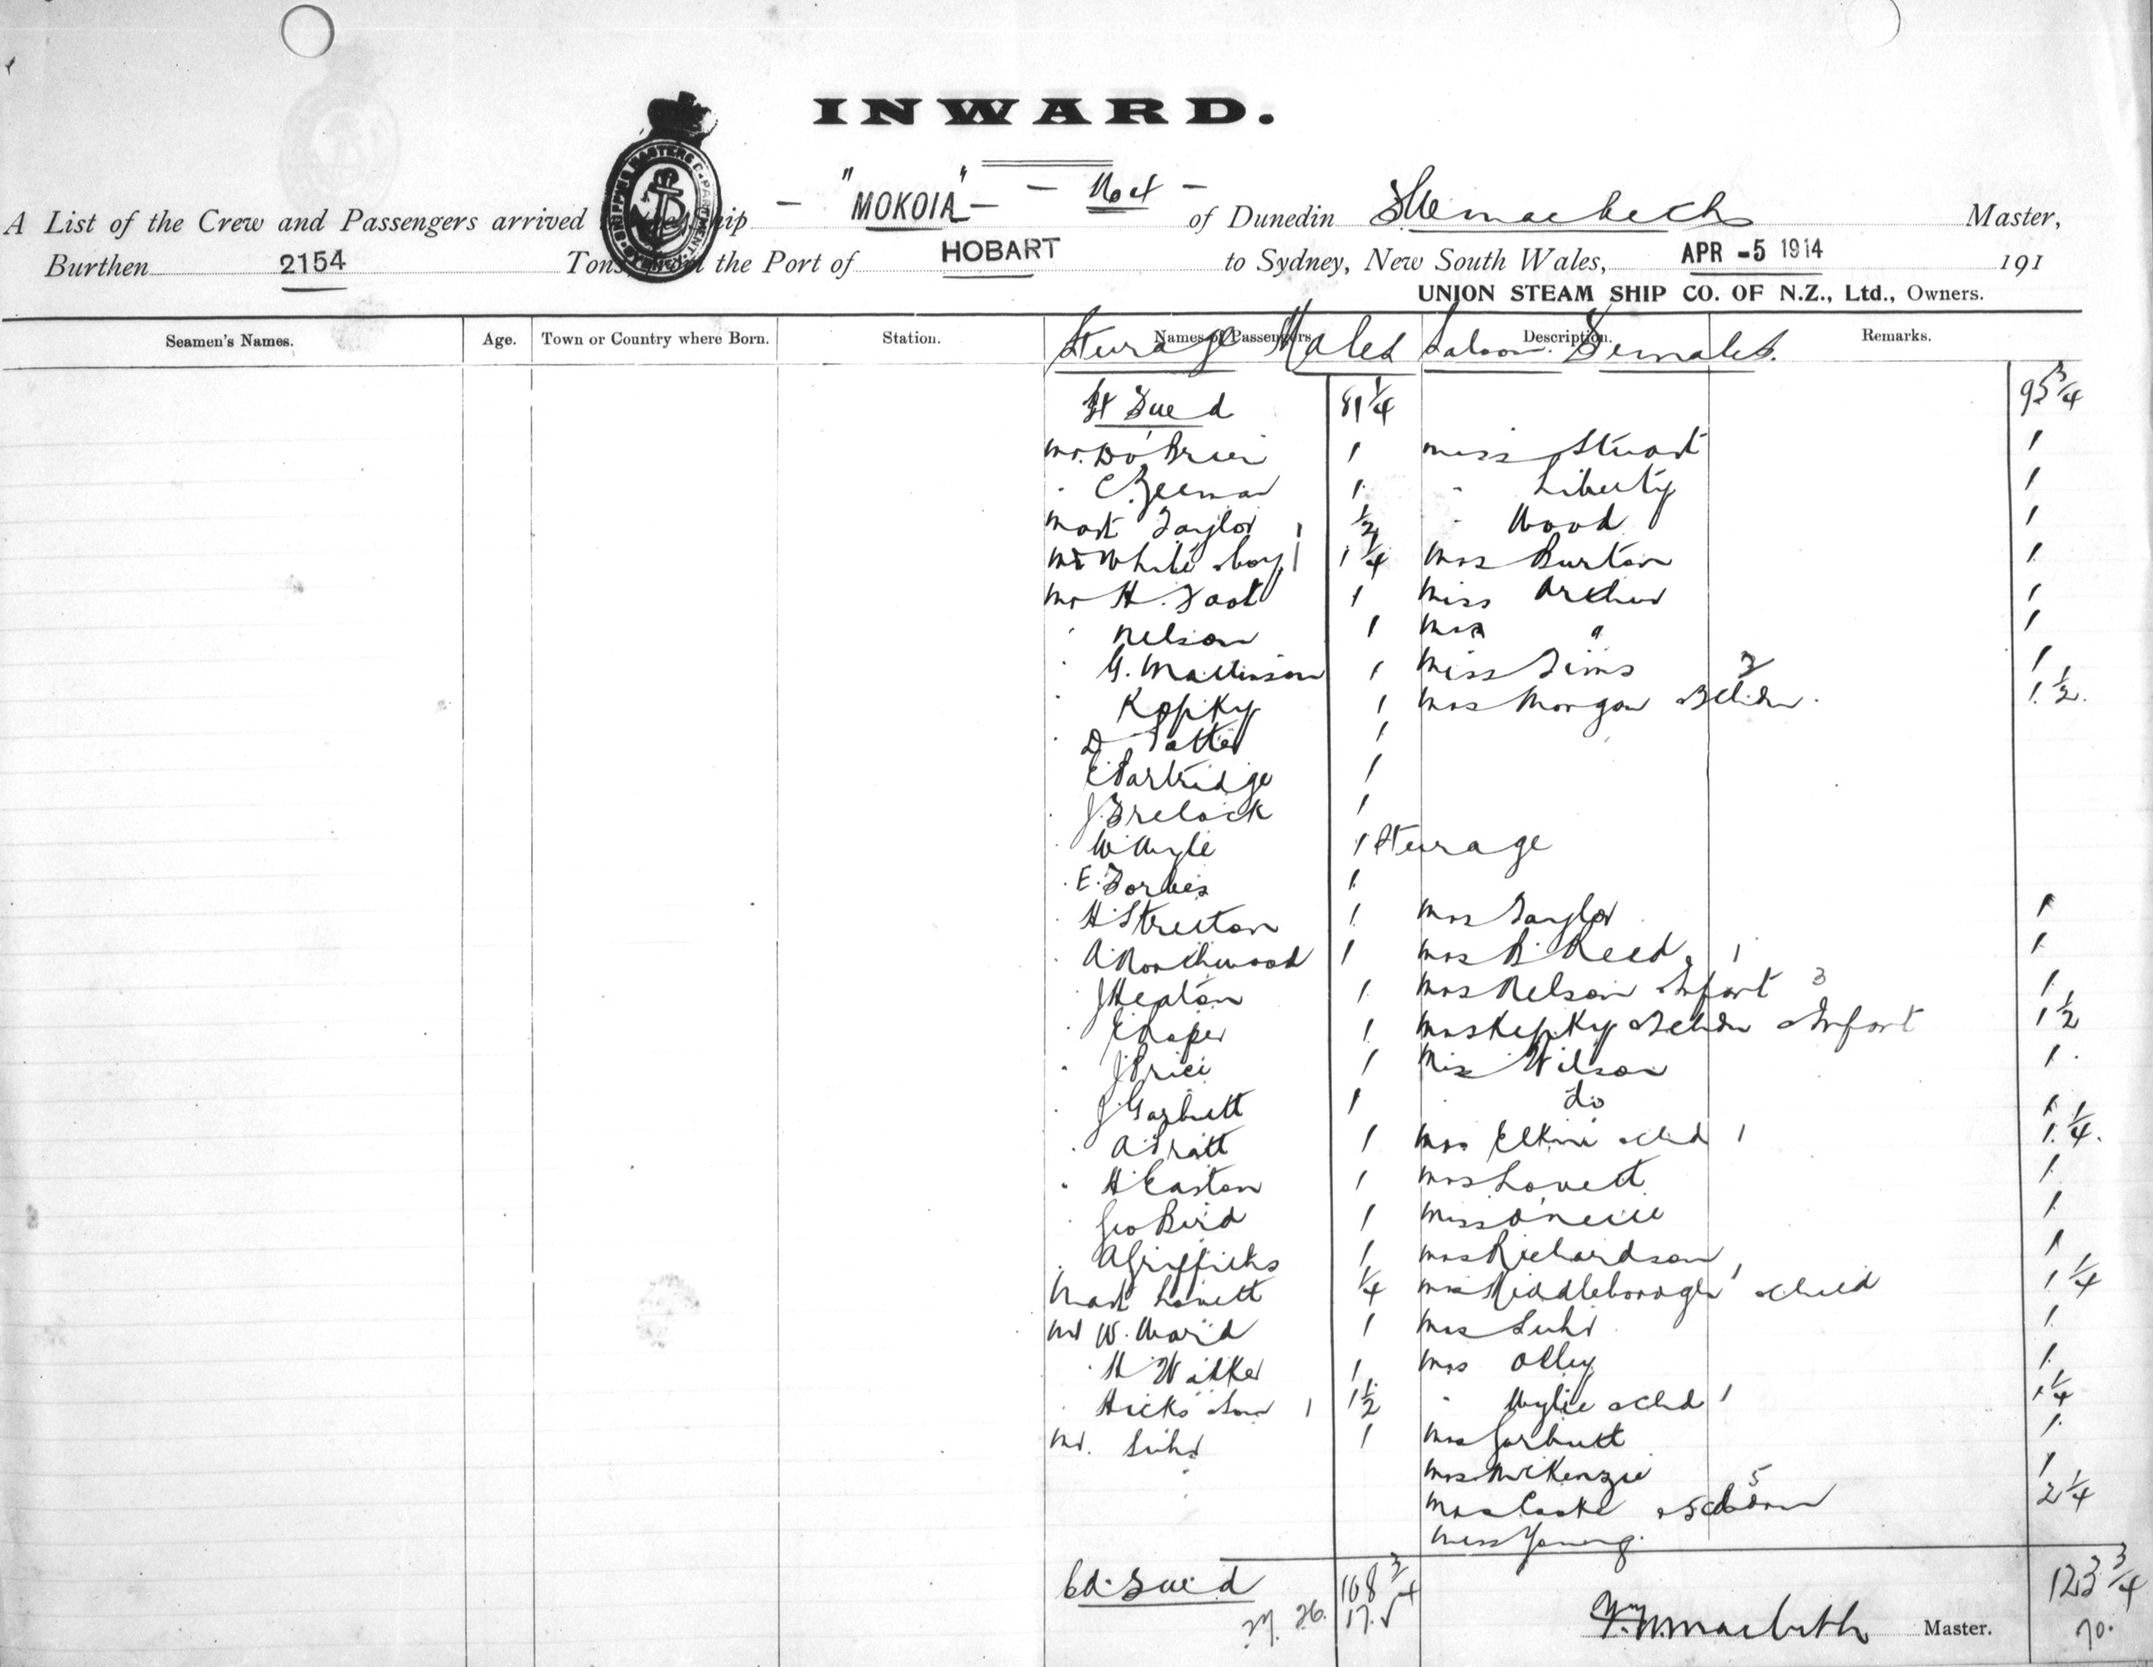 INWARD.
A List of the Crew and Passengers arrived ship - "MOKOIA" - of Dunedin Master,
Burthen 2154 Tons the Port of HOBART to Sydney, New South Wales, APR -5 1914 191
UNION STEAM SHIP CO. OF N.Z., Ltd., Owners.
Seamen's Names. Age. Town or Country where Born. Station. Names of Passengers Description. Remarks.
Steerage Males Saloon Females.
81 1/4 95 3/4
Mr. O'Brien 1 Miss Stuart 1
" 1 " Liberty 1
Mast Taylor 1 1/2 " Wood 1
Mr White & boy 1 1 1/4 Mrs Burton 1
Mr H. Foot 1 Miss Archer 1
" Nelson 1 Mrs " 1
" G. Mallinson 1 Miss Sims 1
" Kopky 1 Mrs Morgan & 2 Chdn. 1 1/2
" 1
" E Partridge 1
" J Trelock 1
" W Wylie 1 Steerage
" E. Forbes 1
" H Stretton 1 Mrs Taylor 1
" A Northwood 1 Mrs R Reed 1 1
" J Heaton 1 Mrs Nelson & Infant 3 1
" Roper 1 Mrs Kopky & 2 Chdn & Infant 1 1/2
" J Price 1 Miss Wilson 1
" J Garbutt 1 " do 1
" A Pratt 1 Mrs & Chd 1 1 1/4
" H Easton 1 Mrs Lovett 1
" Geo Bird 1 Miss O'Neill 1
" A Griffiths 1 Mrs Richardson 1
Mast Lovett 1/4 Mrs Middleborough & Child 1 1/4
Mr W. Ward 1 Mrs Suhr 1
" H Walker 1 Mrs Olley 1
Hicks & Son 1 1 1/2 " Wylie & Chd 1 1 1/4
Mr. Suhr 1 Mrs Garbutt 1
Mrs McKenzie 1
Mrs Cooke & 5 Chdrn 2 1/4
Miss Young.
108 3/4 123 3/4
27. 26. 17. Wm. Macbeth Master. 70.